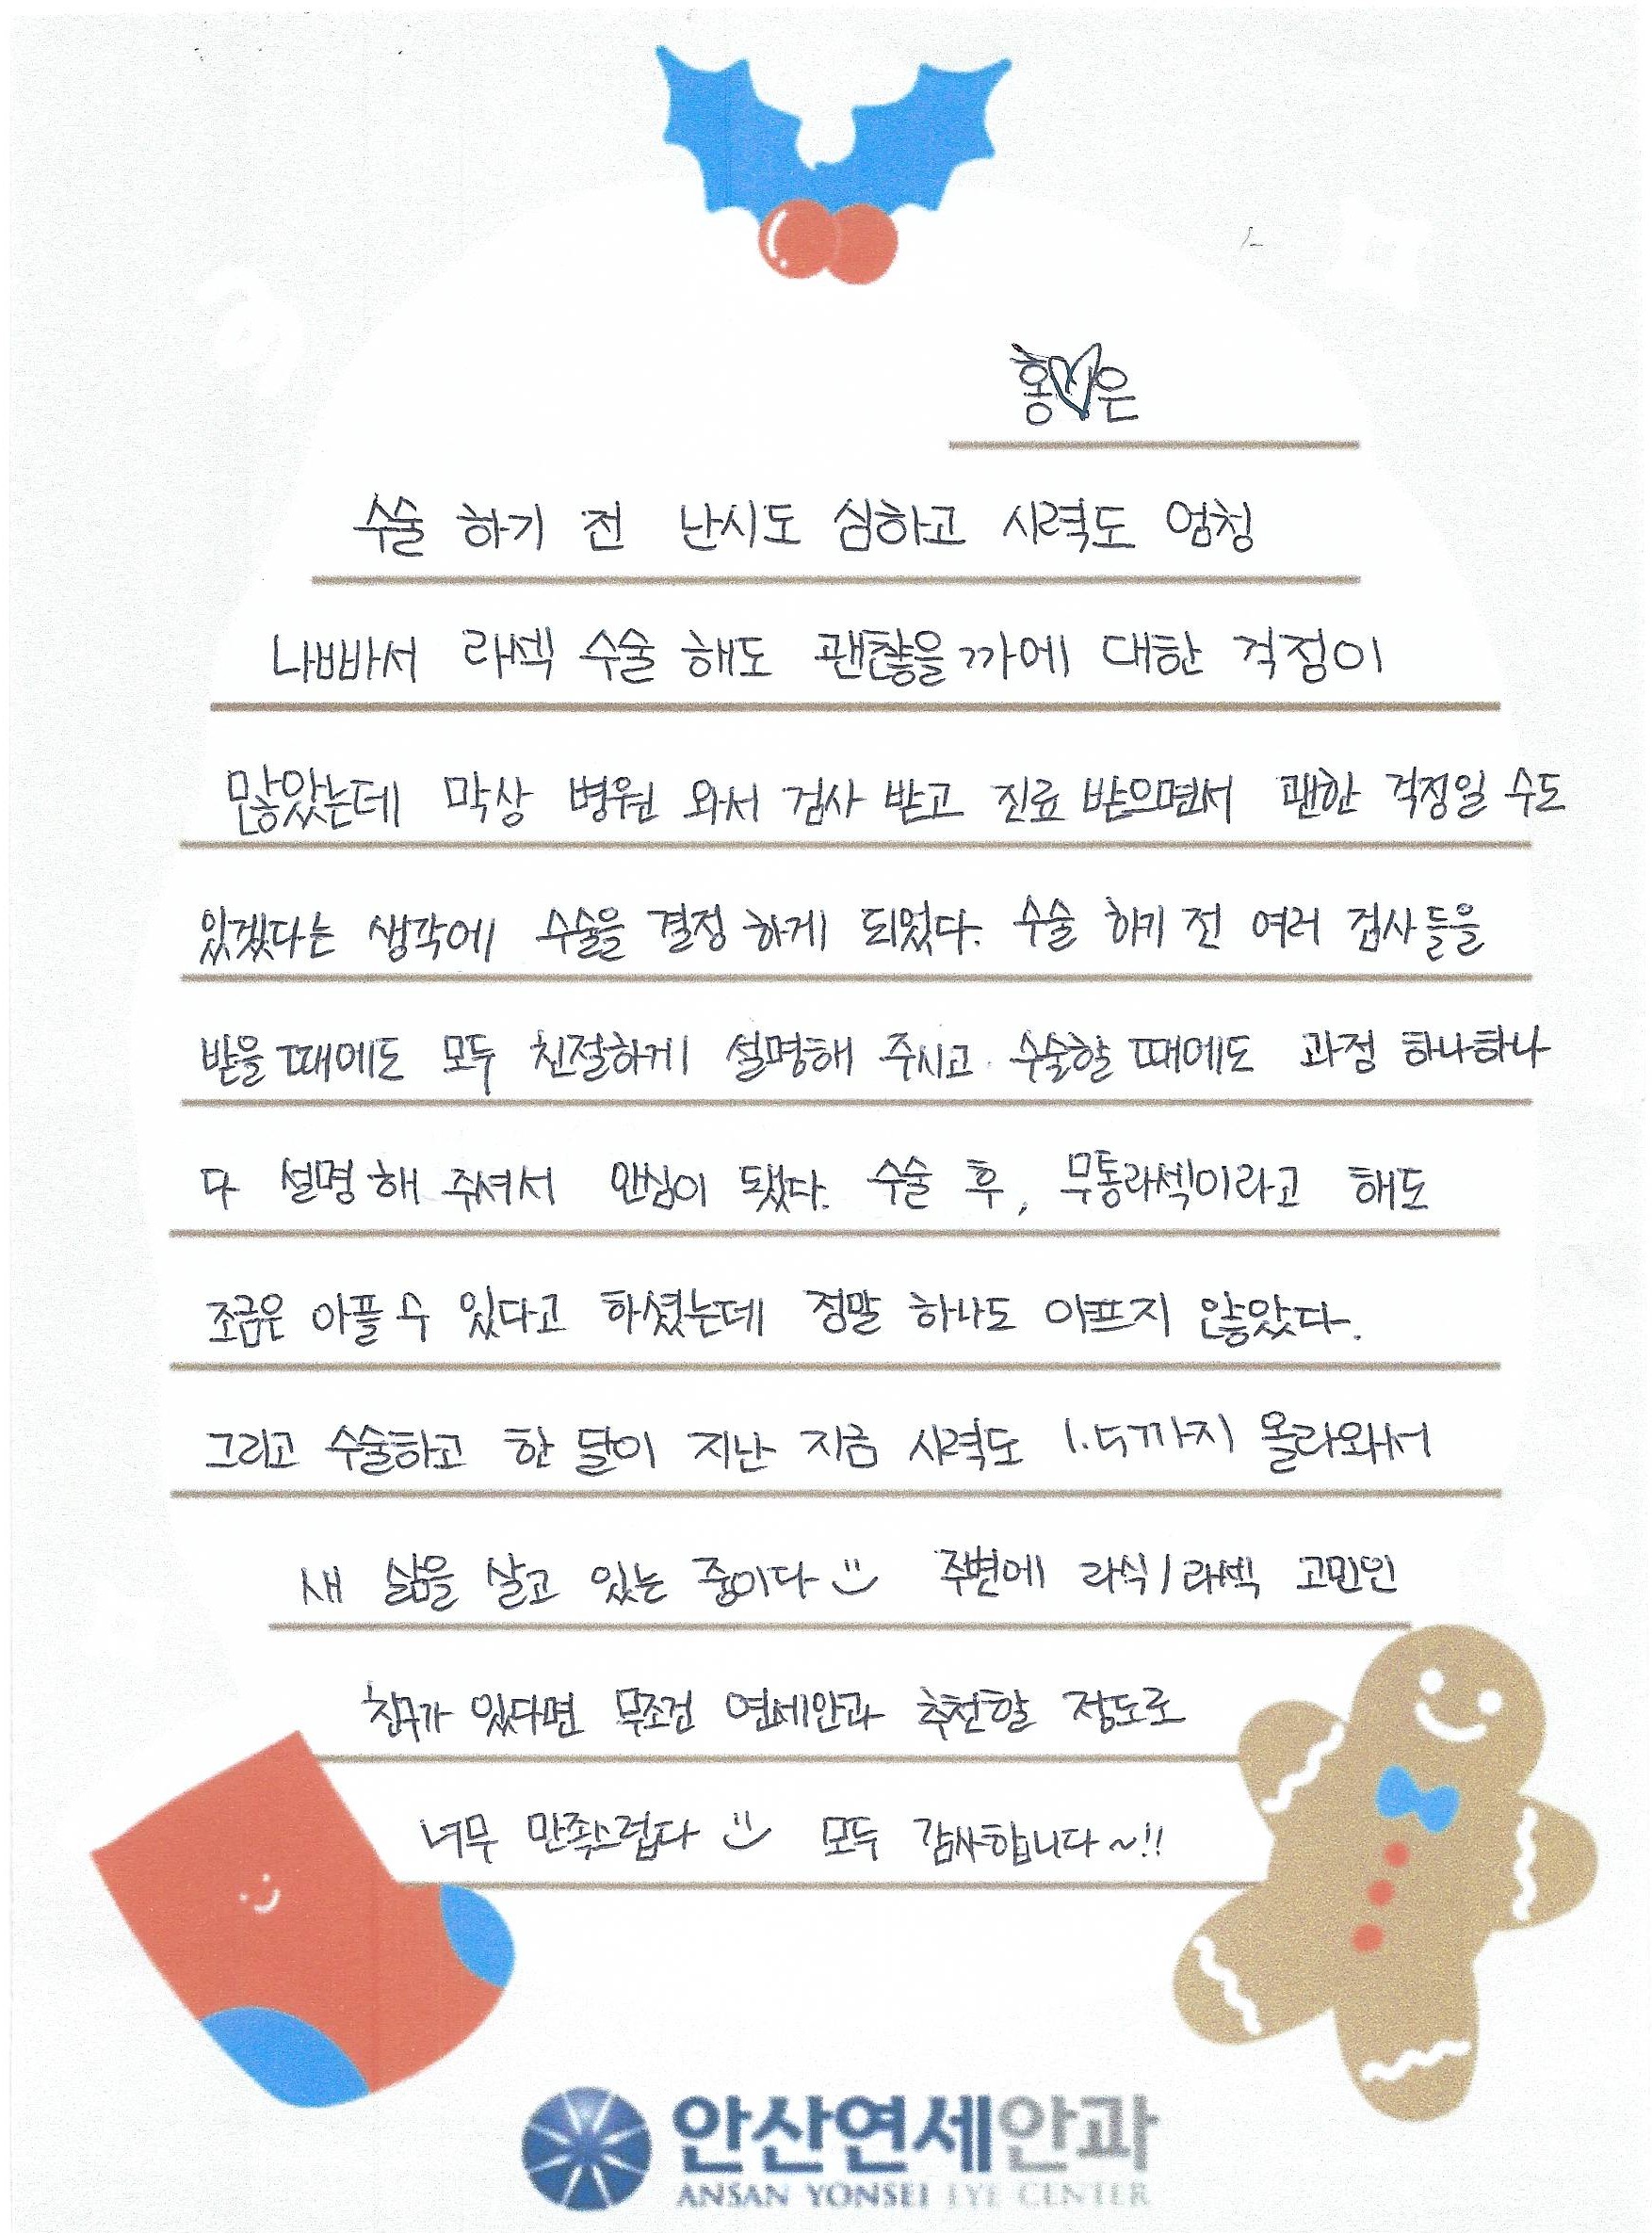 홍♡은
수술 하기 전 난시도 심하고 시력도 엄청
나빠서 라섹 수술 해도 괜찮을까에 대한 걱정이
많았는데 막상 병원 와서 검사 받고 진료 받으면서 괜한 걱정일 수도
있겠다는 생각에 수술을 결정 하게 되었다. 수술 하기 전 여러 검사들을
받을 때에도 모두 친절하게 설명해 주시고 수술할 때에도 과정 하나하나
다 설명 해 주셔서 안심이 됐다. 수술 후, 무통라섹이라고 해도
조금은 아플 수 있다고 하셨는데 정말 하나도 아프지 않았다.
그리고 수술하고 한 달이 지난 지금 시력도 1.5까지 올라와서
새 삶을 살고 있는 중이다 주변에 라식/라섹 고민인
친구가 있다면 무조건 연세안과 추천할 정도로
너무 만족스럽다 모두 감사합니다~!!
안산연세안과
ANSAN YONSEI EYE CENTER